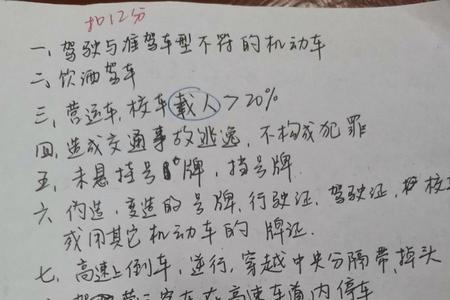 扣12分
一、驾驶与准驾车型不符的机动车
二、饮酒驾车
三、营运车、校车载人>20%
四、造成交通事故逃逸,不构成犯罪
五、未悬挂号牌,挡号牌
六、伪造,变造的号牌、行驶证、驾驶证、校
或用其它机动车的牌证.
七、高速上倒车,逆行,穿越中央分隔带,掉头
高速车道内停车